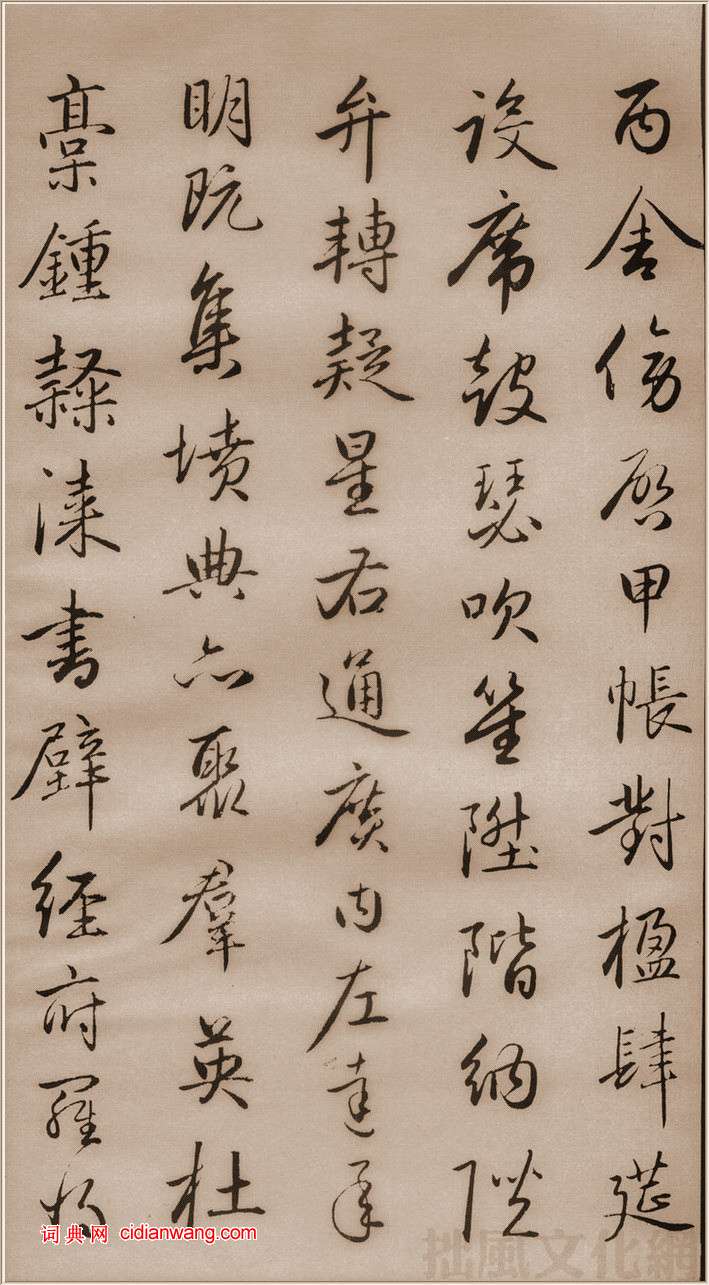 丙舍傍启甲帳對楹肆筵
設席鼓瑟吹笙陞階納陛
弁轉疑星右通廣內左達承
明既集墳典亦聚羣英杜
稾鍾隸漆書壁經府羅將
词典网 cidianwang.com
拙風文化網